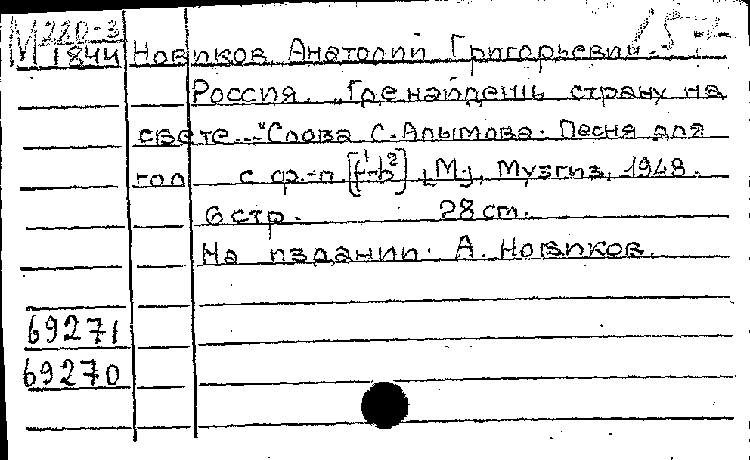 М 220-3
1844
Новиков Анатолий Григорьевич.
Россия. "Где найдешь страну на
свете..." Слова С. Алымова. Песня для
гол с ф.-п. [f¹-b²] [М.], Музгиз, 1948.
6 стр. 28 см.
На издании: А. Новиков.
69271
69270